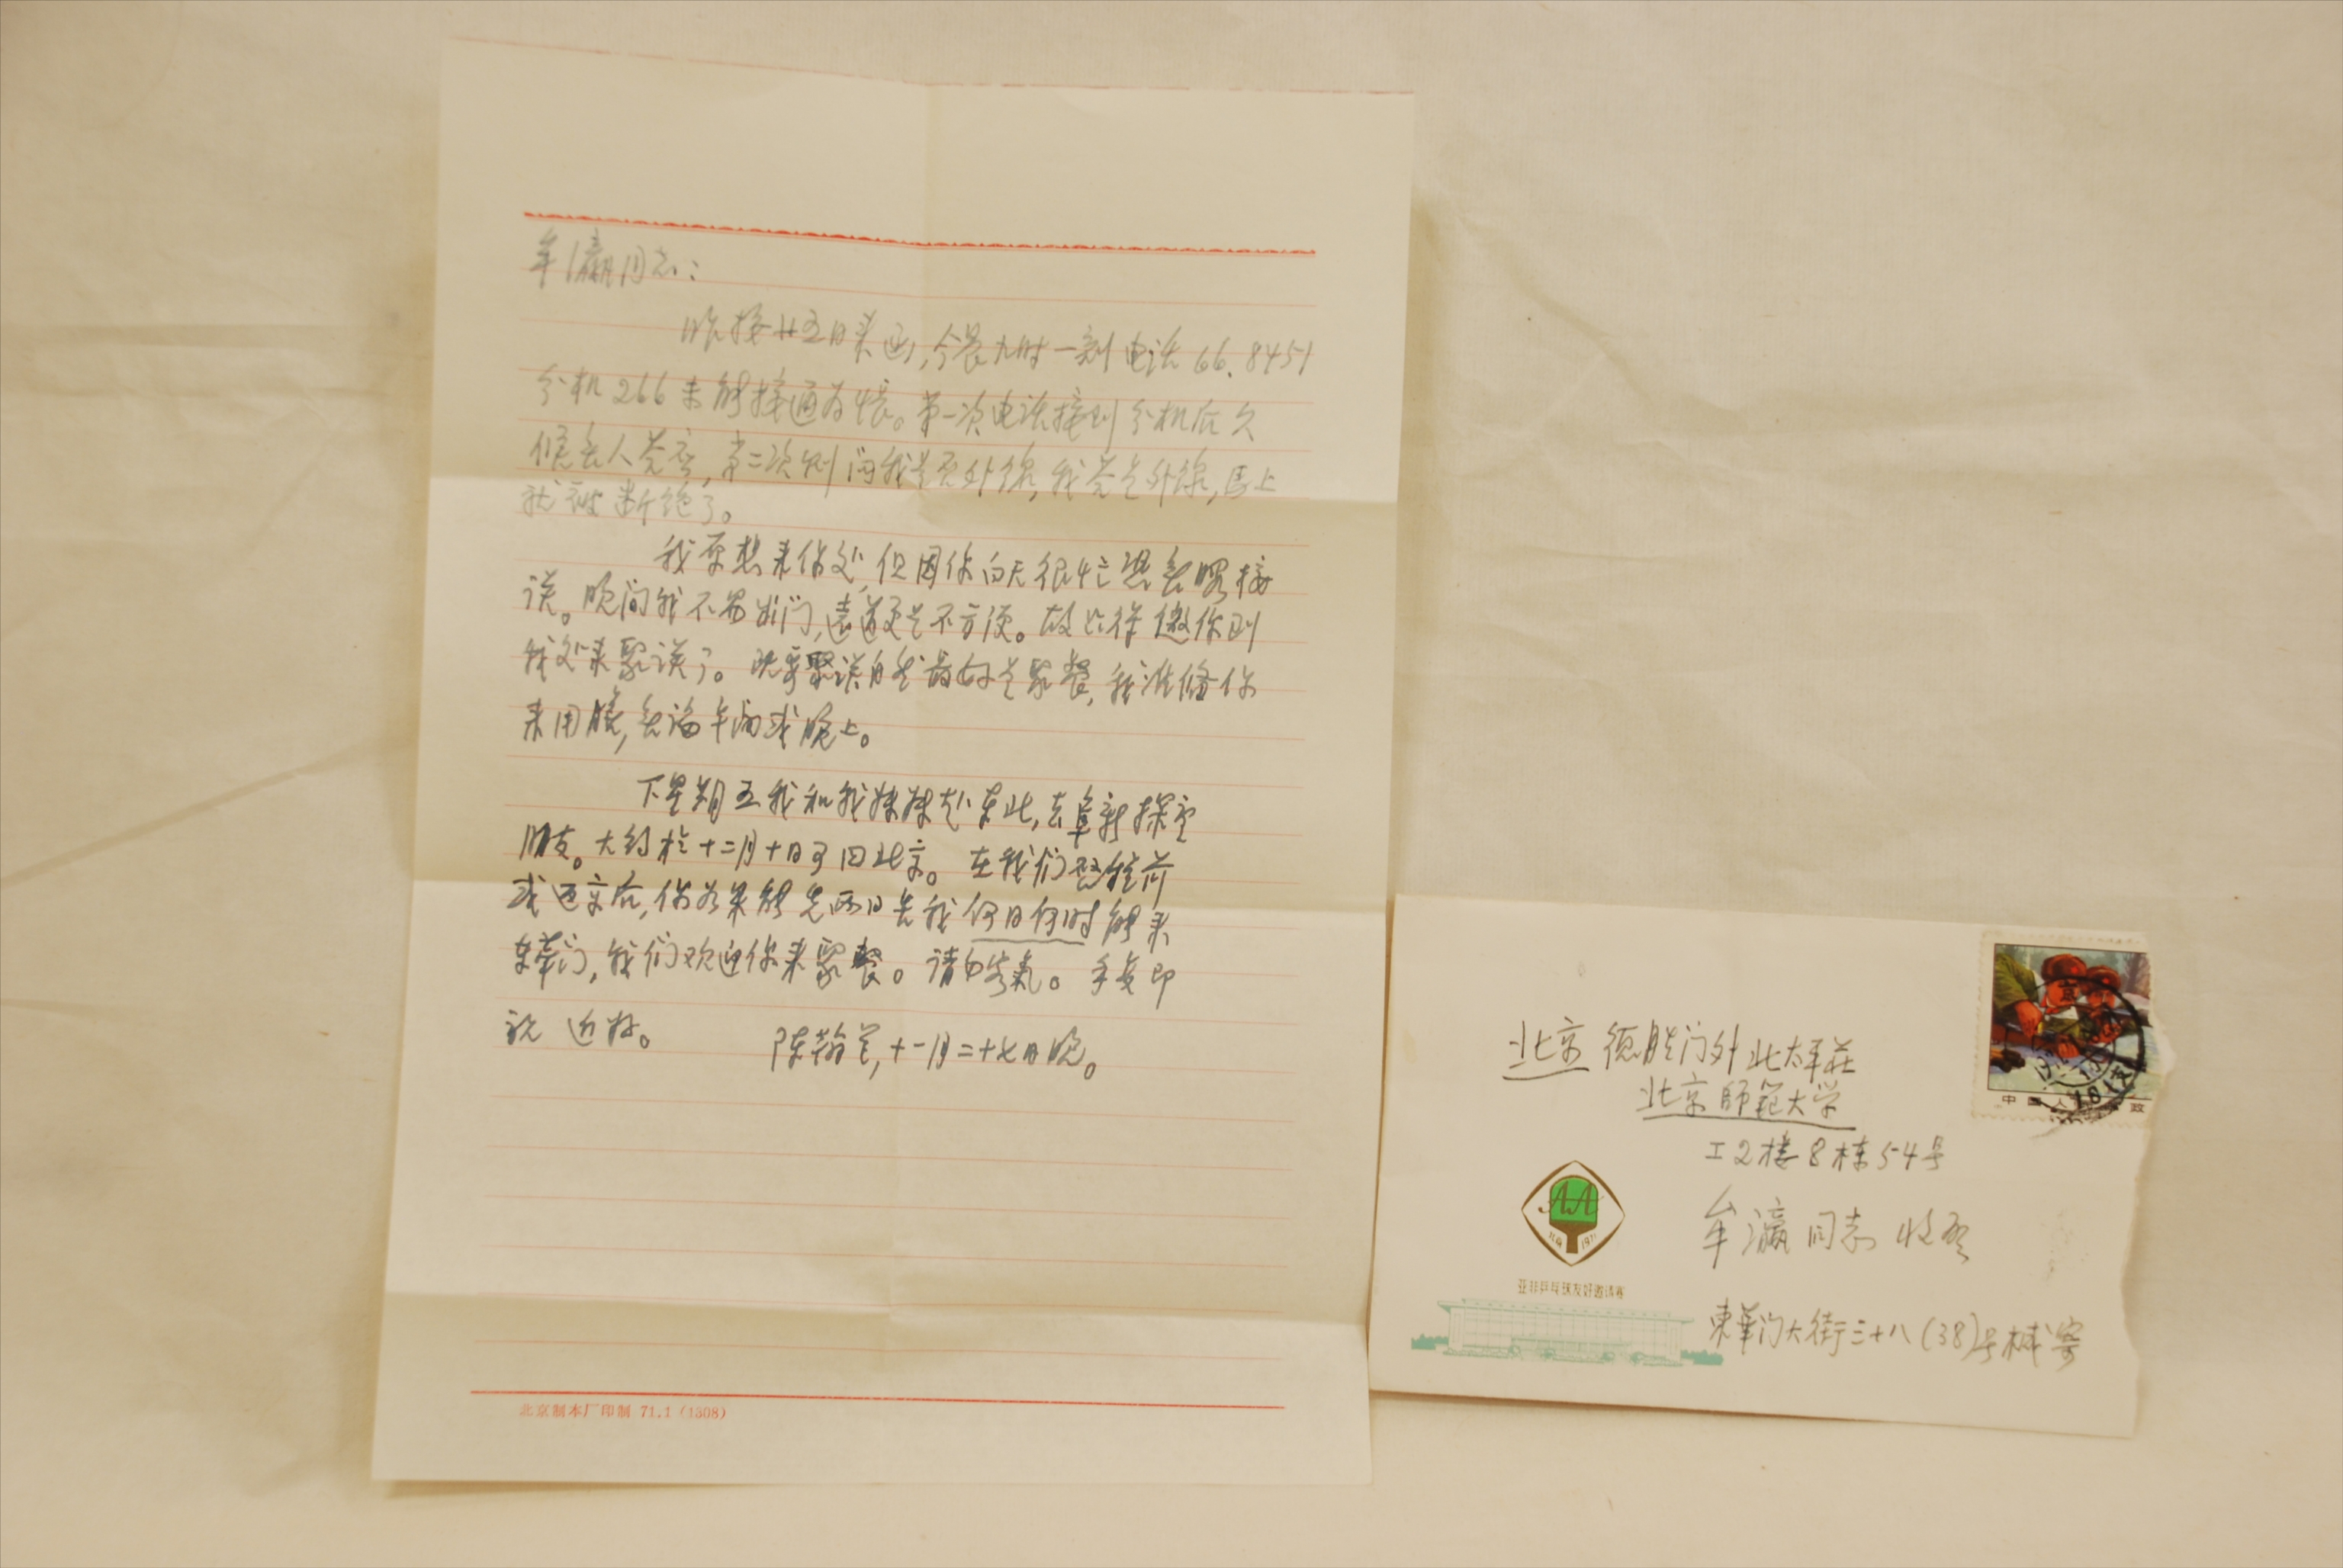 牟瀛同志:
昨接廿五日来函,今晨九时一刻电话66.8451
分机266未能接通为怅。第一次电话接到分机后久
候无人答应,第二次则问我是否外线,我答是外线,马上
就被断绝了。
我原想来你处,但因你白天很忙恐无暇接
谈。晚间我不易出门,远道更是不方便。故只得邀你到
我处来聚谈了。既要聚谈自然最好是聚餐,我准备你
来用膳,无论午间或晚上。
下星期五我和我妹妹赴东北,去阜新探望
朋友。大约于十二月十日可回北京。在我们启程前
或返京后,你如果能先两日告我何日何时能来
东华门,我们欢迎你来聚餐。请勿客氣。手复即
祝 近好。 陈翰笙,十一月二十七日晚。
北京制本厂印制 71.1 (1308)
北京 德胜门外北太平莊
北京師範大学
工2楼8栋54号
牟瀛同志 收启
東華门大街三十八(38)号械寄
中国人 政
京
AA
北京 1971
亚非乒乓球友好邀请赛